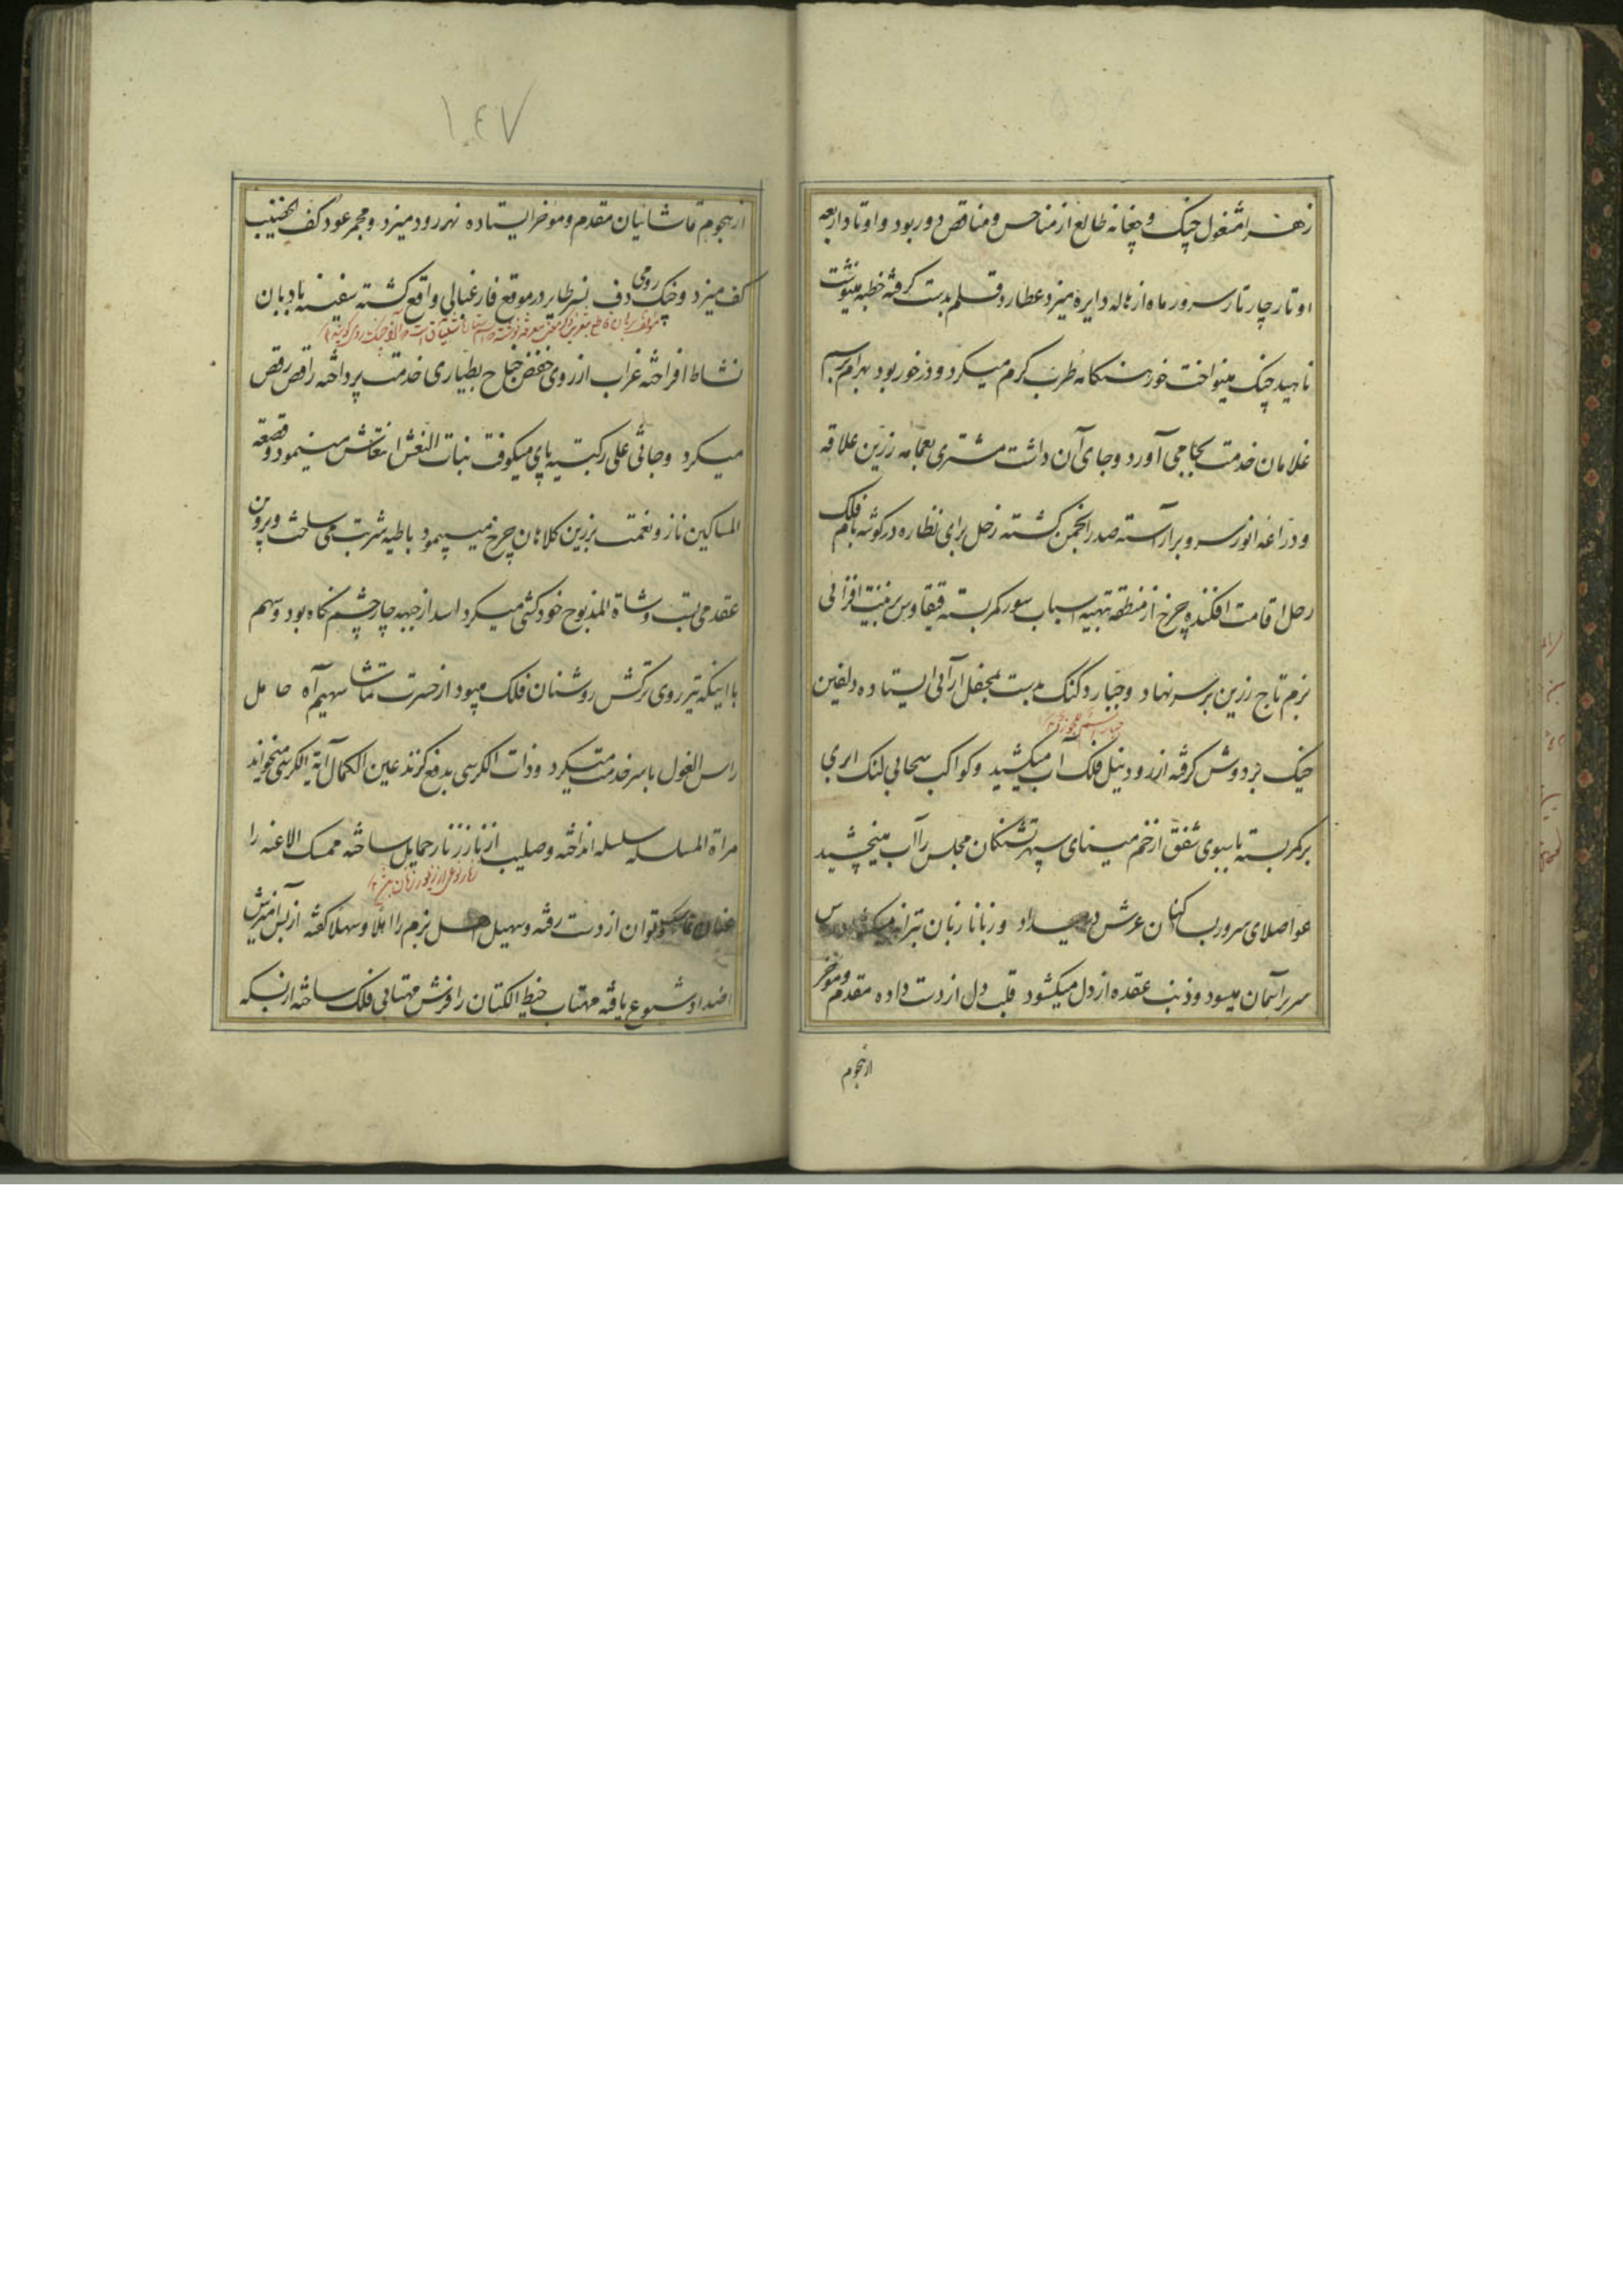 زهرا مشغول چنگ و چغانه طالع از مناحس و مناقص دور بود و اوتاد اربعه
اوتار چار تار سرور ماه از هاله دایره میزد عطارد قلم بدست گرفته خطبه مینوشت
ناهید چنگ مینواخت خور هنگامه طرب گرم میکرد و در خور بود بهرام برسم
غلامان خدمت بجا می آورد و جای آن داشت مشتری بعمامه زرین علاقه
و دراعه انور سر و بر آراسته صدر انجمن گشته زحل برای نظاره در گوشه بام فلک
رحل اقامت افکنده چرخ از منطقه بتهیه اسباب سور کمر بسته قیقاوس بزینت افزائی
بزم تاج زرین بر سر نهاد و جبار دگنگ بدست بمحفل آرائی ایستاده دلفین
خیک بر دوش گرفته از رود نیل فلک آب میکشید و کواکب سحابی لنگ ابری
بر کمر بسته با سبوی شفق از خم مینای سپهر تشنگان مجلس را آب میچشید
عوا صلای سرور بساکنان عرش در میداد و زبانا زبان بترانه میگشود
سریر آسمان میسود و ذنب عقده از دل میکشود قلب دل از دست داده مقدم و موخر
از هجوم
۱۴۷
از هجوم تماشائیان مقدم و موخر ایستاده نهر رود میزد و مجمر عود کف الخضیب
کف میزد و چنگ رومی دف نسر طایر در موقع فارغبالی واقع گشته سفینه بادبان
نشاط افراخته غراب از روی خفض جناح بطیاری خدمت پرداخته راقص رقص
میکرد و جاثی علی رکبتیه پای میکوفت بنات النعش انتعاش مینمود و قصعة
المساکین ناز و نعمت بزرین کلاهان چرخ میپیمود باطیه شربت می ساخت و پروین
عقد می بست و شاة المذبوح خودکشی میکرد اسد از جبهه چار چشم نگاه بود و سهم
با اینکه تیر روی ترکش روشنان فلک میبود از حسرت تماشا سهیم آه حامل
راس الغول با سر خدمت میکرد و ذات الکرسی بدفع گزند عین الکمال آیة الکرسی میخواند
مراة المسلسله سلسله انداخته و صلیب از نار زنار حمایل ساخته ممسک الاعنه را
عنان تماسک و توان از دست رفته و سهیل اهل بزم را اهلا و سهلا گفته از بس آمیزش
اضداد شیوع یافته مهتاب خیط الکتان را فرش مهتابی فلک ساخته از بسکه